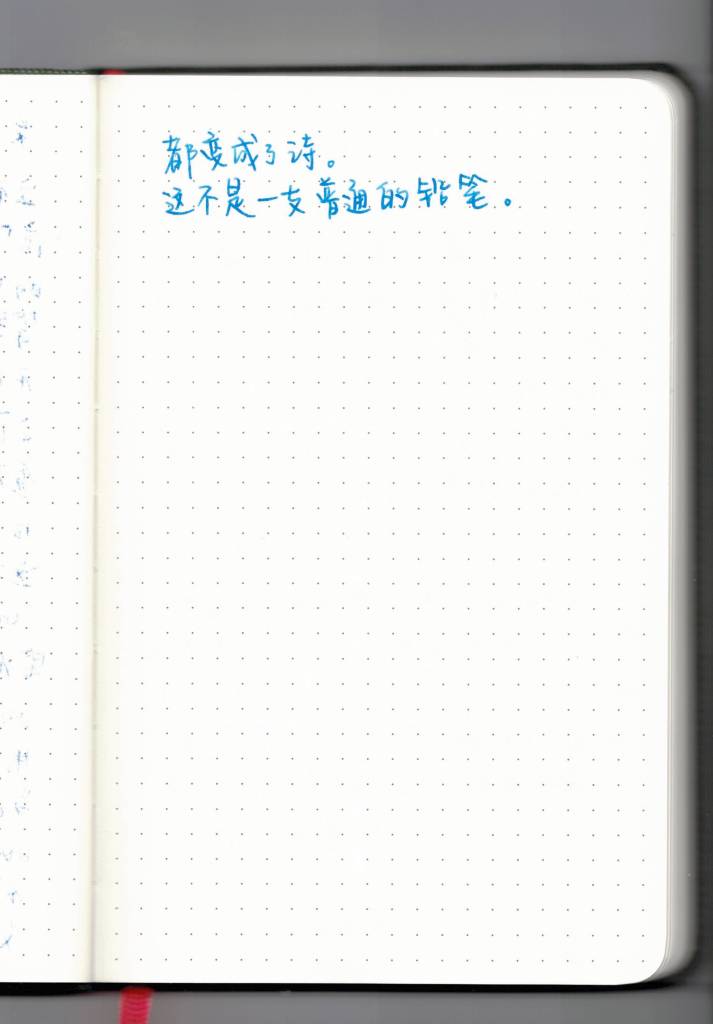 都变成了诗。
这不是一支普通的铅笔。